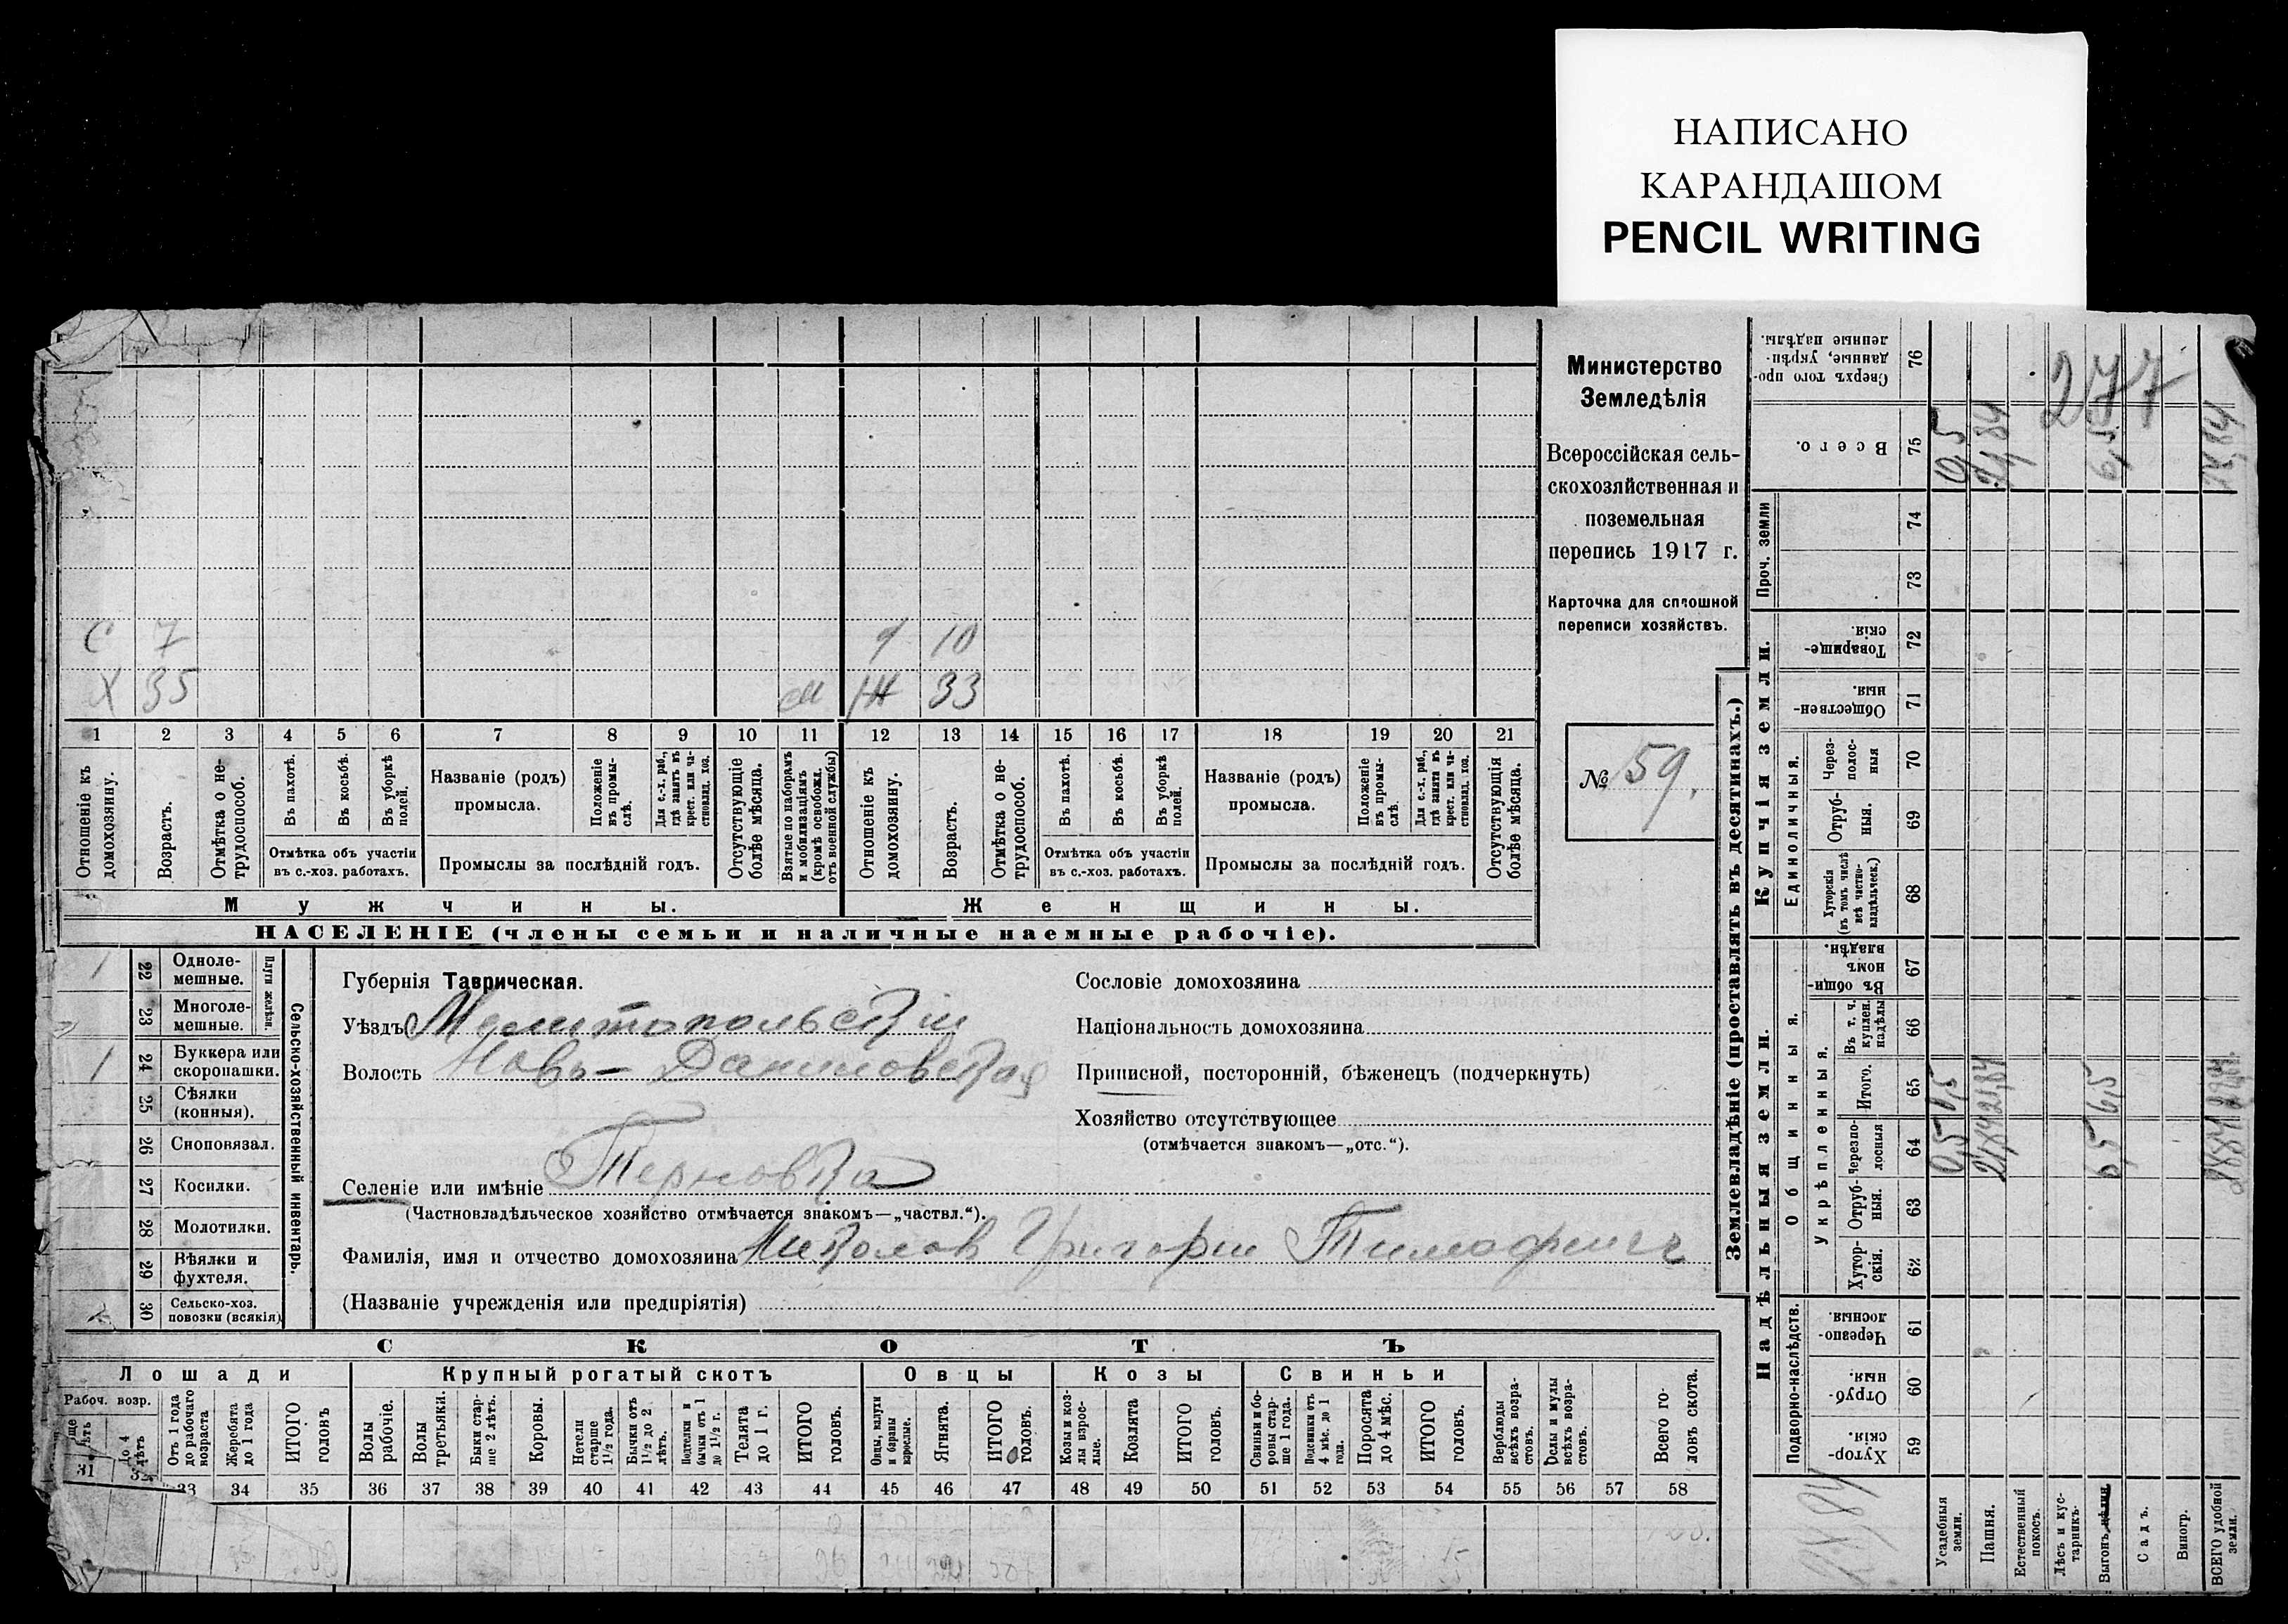 НАПИСАНО
КАРАНДАШОМ
PENCIL WRITING
Министерство
Земледѣлія
Всероссійская сель-
скохозяйственная и
поземельная
перепись 1917 г.
Карточка для сплошной
переписи хозяйствъ.
№ 59.
С 7 10
Х 35 м Ж 33
1 2 3 4 5 6 7 8 9 10 11 12 13 14 15 16 17 18 19 20 21
Отношеніе къ домохозяину.
Возрастъ.
Отмѣтка о не-трудоспособ.
Въ пахотѣ.
Въ косьбѣ.
Въ уборкѣ полей.
Отмѣтка объ участіи
въ с.-хоз. работахъ.
Названіе (родъ)
промысла.
Положеніе въ промы-слѣ.
Для с.-х. раб., гдѣ занятъ въ крест. или ча-стновлад. хоз.
Промыслы за послѣдній годъ.
Отсутствующіе болѣе мѣсяца.
Взятые по наборамъ и мобилизаціямъ (кромѣ освобожд. отъ военной службы)
Отношеніе къ домохозяину.
Возрастъ.
Отмѣтка о не-трудоспособ.
Въ пахотѣ.
Въ косьбѣ.
Въ уборкѣ полей.
Отмѣтка объ участіи
въ с.-хоз. работахъ.
Названіе (родъ)
промысла.
Положеніе въ промы-слѣ.
Для с.-х. раб., гдѣ занята въ крест. или ча-стновлад. хоз.
Промыслы за послѣдній годъ.
Отсутствующія болѣе мѣсяца.
Мужчины. Женщины.
НАСЕЛЕНІЕ (члены семьи и наличные наемные рабочіе).
1 22 Одноле-мешные.
23 Многоле-мешные.
Плуги желѣзн.
1 24 Буккера или скоропашки.
25 Сѣялки (конныя).
26 Сноповязал.
27 Косилки.
28 Молотилки.
29 Вѣялки и фухтеля.
30 Сельско-хоз. повозки (всякія)
Сельско-хозяйственный инвентарь.
Губернія Таврическая.
Уѣздъ Мелитопольскій
Волость Ново-Даниловская
Селеніе или имѣніе Терновка
(Частновладѣльческое хозяйство отмѣчается знакомъ—„частвл.“).
Фамилія, имя и отчество домохозяина Миколов Григорій Тимофеичъ
(Названіе учрежденія или предпріятія)
Сословіе домохозяина
Національность домохозяина
Приписной, посторонній, бѣженецъ (подчеркнуть)
Хозяйство отсутствующее
(отмѣчается знакомъ—„отс.“).
СКОТЪ
Лошади Крупный рогатый скотъ Овцы Козы Свиньи
Рабоч. возр.
до 4 лѣтъ
Отъ 1 года до рабочаго возраста
Жеребята до 1 года
ИТОГО головъ
Волы рабочіе.
Волы третьяки.
Быки стар-ше 2 лѣтъ.
Коровы.
Нетели старше 1½ года.
Бычки отъ 1½ до 2 лѣтъ.
Подтелки и бычки отъ 1 до 1½ г.
Телята до 1 г.
ИТОГО головъ.
Овцы, валухи и бараны взрослые.
Ягнята.
ИТОГО головъ.
Козы и коз-лы взрос-лые.
Козлята
ИТОГО головъ.
Свиньи и бо-ровы стар-ше 1 года.
Подсвинки отъ 4 мѣс. до 1 года.
Поросята до 4 мѣс.
ИТОГО головъ.
Верблюды всѣхъ возра-стовъ.
Ослы и мулы всѣхъ возра-стовъ.
Всего го-ловъ скота.
31 32 33 34 35 36 37 38 39 40 41 42 43 44 45 46 47 48 49 50 51 52 53 54 55 56 57 58
Землевладѣніе (проставлять въ десятинахъ.)
Надѣльныя земли. Купчія земли. Проч. земли
Подворно-наслѣдств.
Общинныя.
Укрѣпленныя.
Единоличныя.
Хутор-скія. 59
Отруб-ныя. 60
Черезпо-лосныя. 61
Хутор-скія. 62
Отруб-ныя. 63
Черезпо-лосныя 64
Итого. 65
Въ т. ч. куплен. надѣлы 66
Въ общин-номъ владѣн. 67
Хуторскія (въ томъ числѣ всѣ частно-владѣльческ.) 68
Отруб-ныя. 69
Через-полос-ныя 70
Обществен-ныя. 71
Товарище-скія. 72
73
74
Всего. 75
Сверхъ того про-данные, укрѣп-ленные надѣлы. 76
277
Усадебныя земли. 0,5 0,5 0,5
Пашня. 21,84 21,84 21,84
Естественный покосъ.
Лѣсъ и кус-тарникъ.
Выгонъ 6,5 6,5 6,5
Садъ.
Виногр.
ВСЕГО удобной земли. 28,84 28,84 28,84
28,84